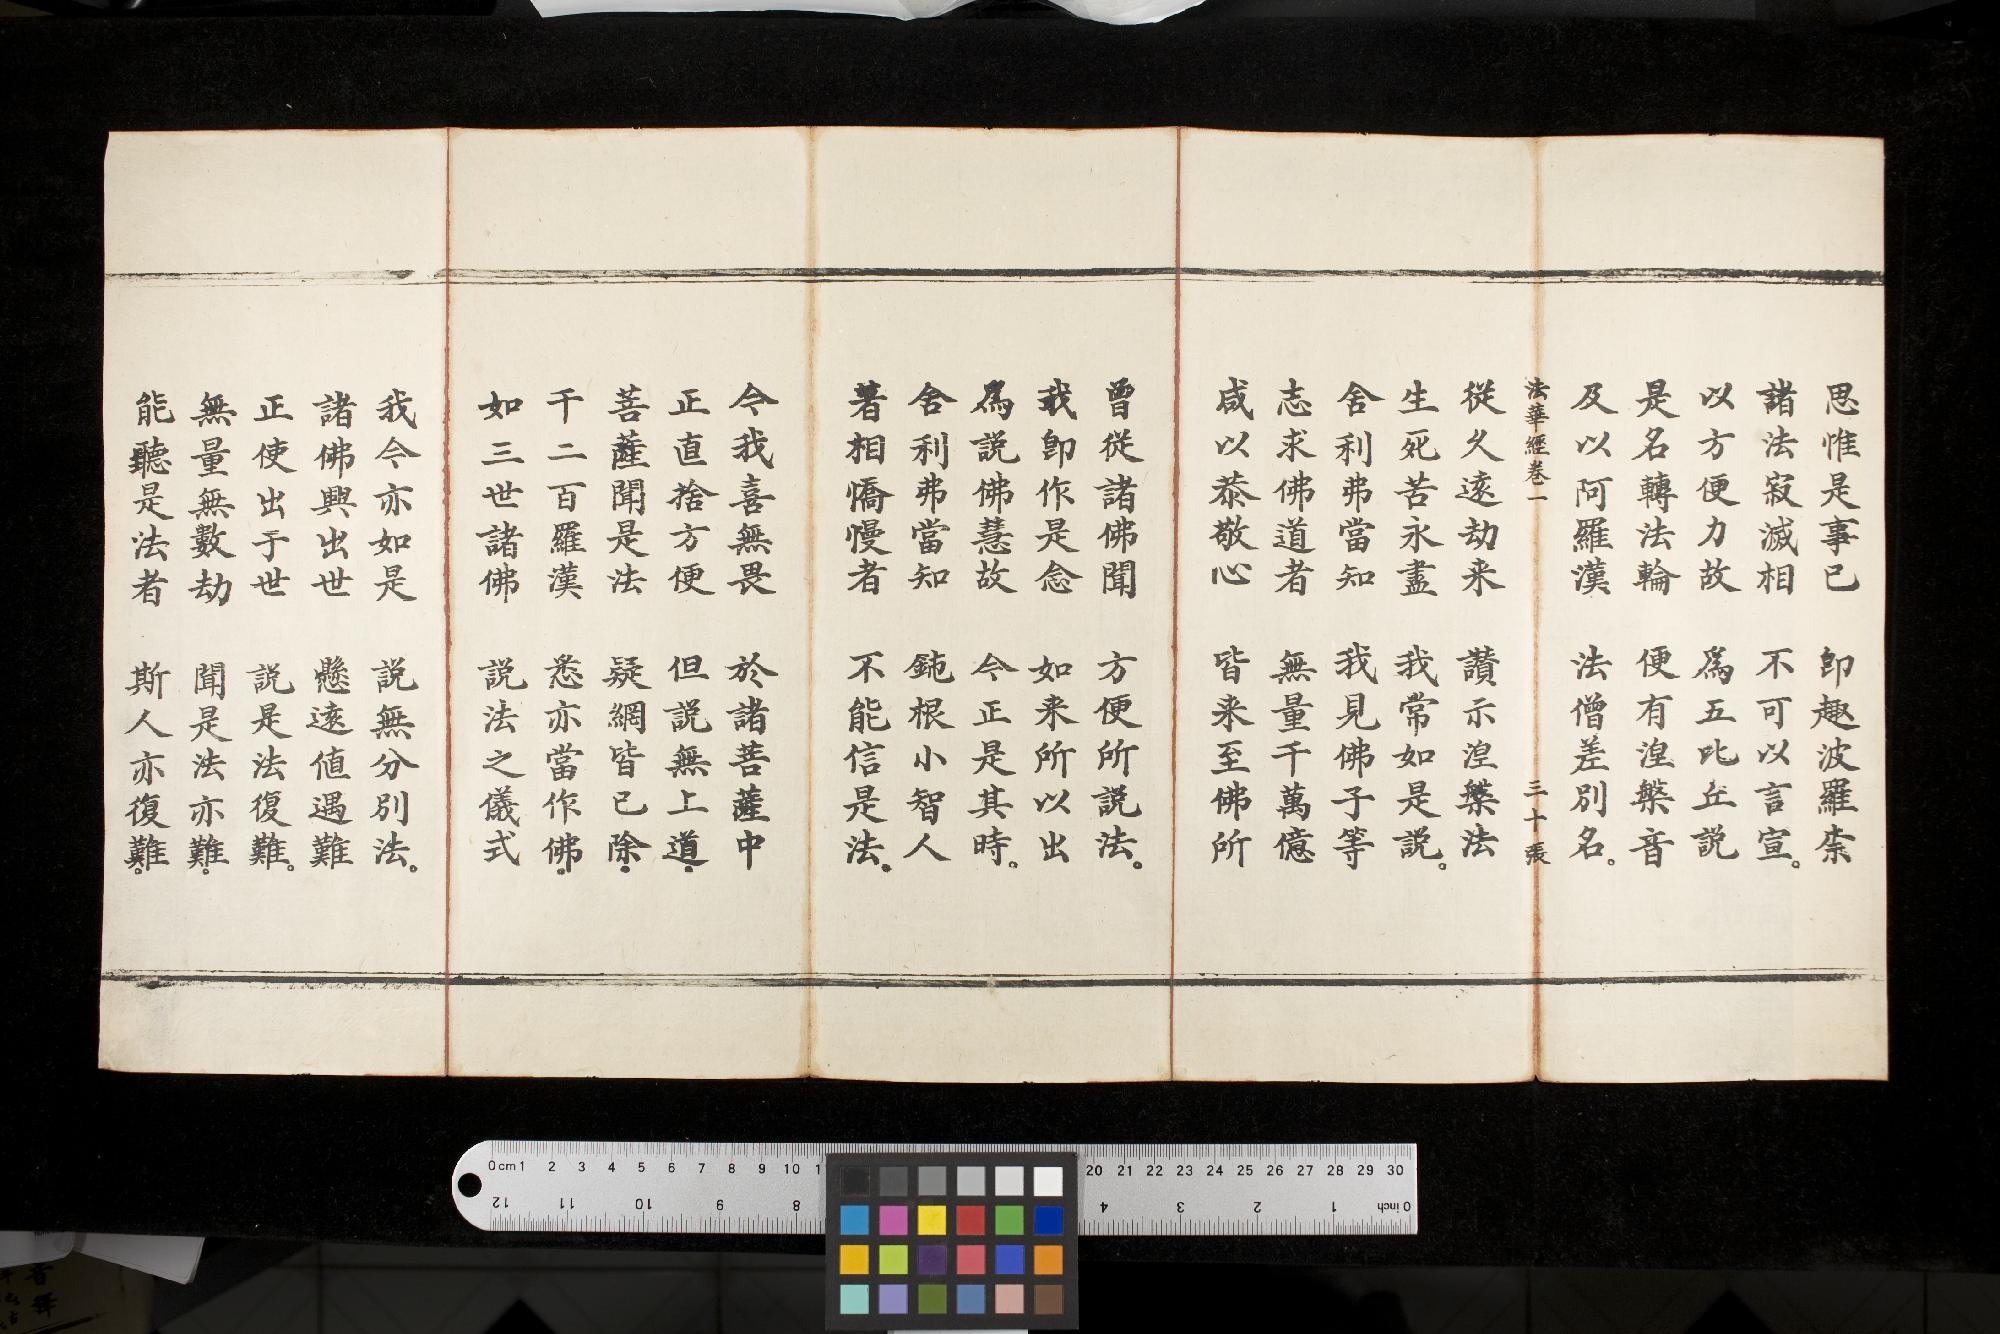 思惟是事已 即趣波羅柰
諸法寂滅相 不可以言宣。
以方便力故 爲五比丘説
是名轉法輪 便有涅槃音
及以阿羅漢 法僧差別名。
法華經卷一 三十張
從久遠劫来 讚示涅槃法
生死苦永盡 我常如是説。
舍利弗當知 我見佛子等
志求佛道者 無量千萬億
咸以恭敬心 皆来至佛所
曾從諸佛聞 方便所説法。
我即作是念 如来所以出
爲説佛慧故 今正是其時。
舍利弗當知 鈍根小智人
著相憍慢者 不能信是法。
今我喜無畏 於諸菩薩中
正直捨方便 但説無上道。
菩薩聞是法 疑網皆已除。
千二百羅漢 悉亦當作佛。
如三世諸佛 説法之儀式
我今亦如是 説無分別法。
諸佛興出世 懸遠値遇難
正使出于世 説是法復難。
無量無數劫 聞是法亦難。
能聽是法者 斯人亦復難。
0 cm 1 2 3 4 5 6 7 8 9 10 1 20 21 22 23 24 25 26 27 28 29 30
12 11 10 9 8 4 3 2 1 inch 0